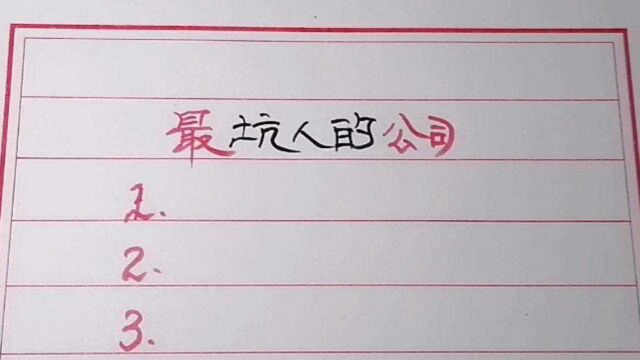 最坑人的公司
1.
2.
3.